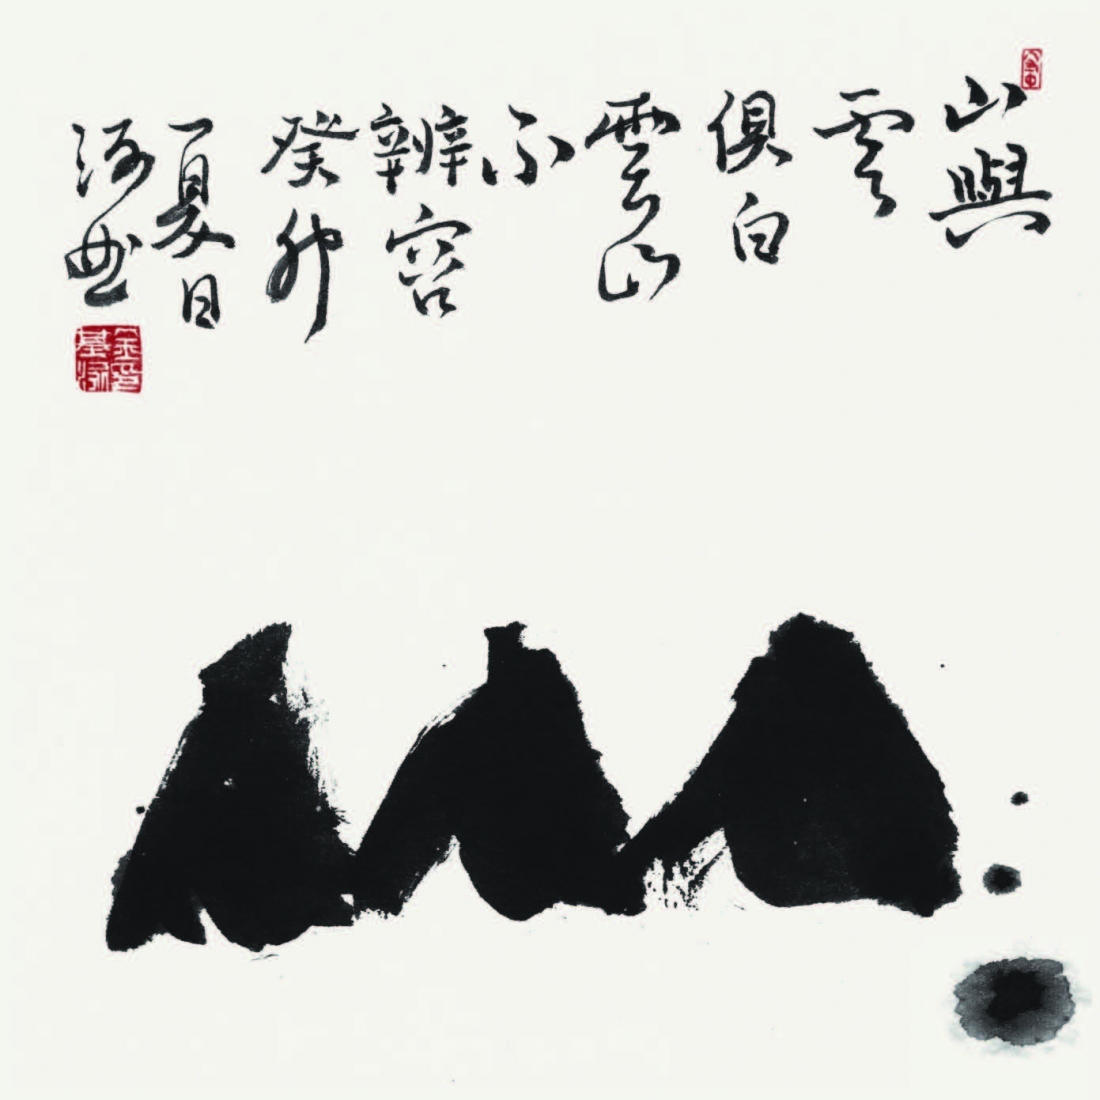 山與
雲
俱白
雲山
不
辨容
癸卯
夏日
河